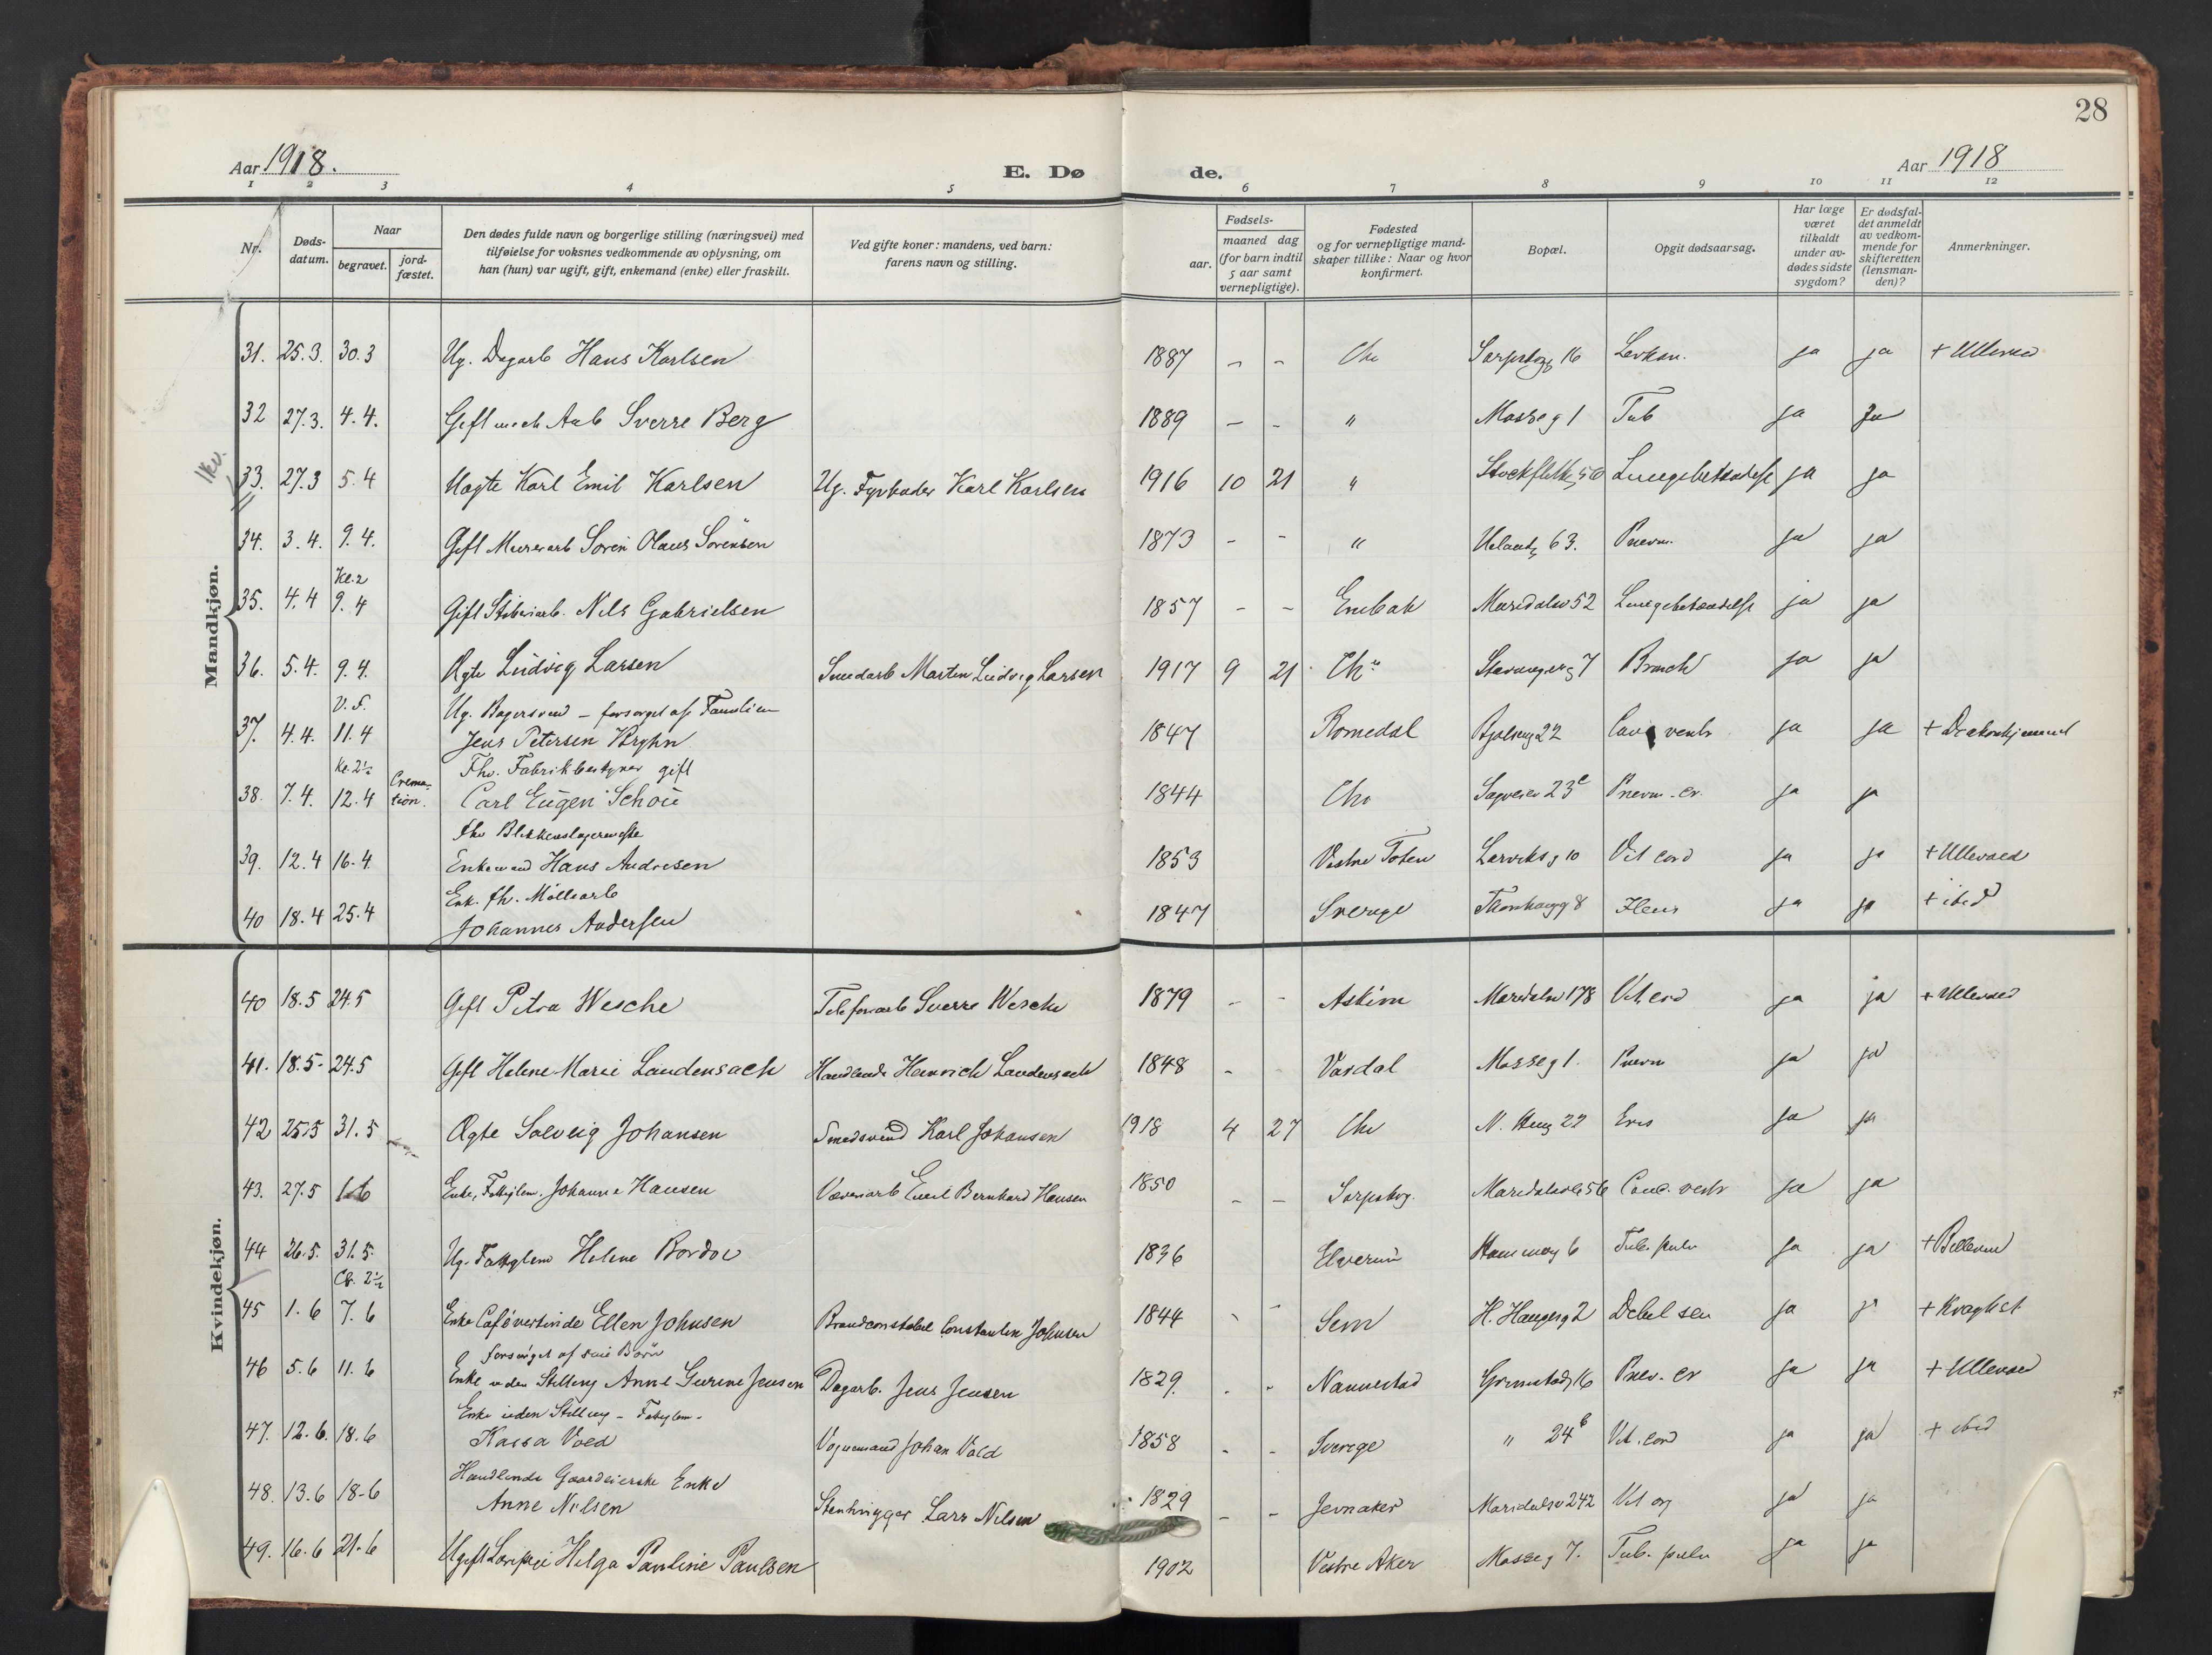 28
Aar 1918. E. Dø de. Aar 1918
1 2 3 4 5 6 7 8 9 10 11 12
Nr.
Døds-
datum.
Naar
begravet.
jord-
fæstet.
Den dødes fulde navn og borgerlige stilling (næringsvei) med
tilføielse for voksnes vedkommende av oplysning, om
han (hun) var ugift, gift, enkemand (enke) eller fraskilt.
Ved gifte koner: mandens, ved barn:
farens navn og stilling.
Fødsels-
aar.
maaned dag
(for barn indtil
5 aar samt
vernepligtige).
Fødested
og for vernepligtige mand-
skaper tillike: Naar og hvor
konfirmert.
Bopæl.
Opgit dødsaarsag.
Har læge
været
tilkaldt
under av-
dødes sidste
sygdom?
Er dødsfal-
det anmeldt
av vedkom-
mende for
skifteretten
(lensman-
den)?
Anmerkninger.
Mandkjøn.
31. 25.3. 30.3 Ug. Dagarb Hans Karlsen 1887 – – Chr 16 ja ja
32 27.3. 4.4. Gift mek Arb Sverre Berg 1889 – – " Mosseg 1 Tub ja ja
1kv.
33. 27.3 5.4 Uægte Karl Emil Karlsen Ug. Fyrbøder Karl Karlsen 1916 10 21 " Lungebetændelse ja ja
34. 3.4. 9.4. Gift Murerarb Søren Olaus Sørensen 1873 – – " Uelandsg 63. Pnevm. ja ja
Kl. 2
35. 4.4 9.4 Gift Støberiarb. Nils Gabrielsen 1857 – – Enebak Maridalsv 52 Lungebetændelse ja ja
36. 5.4. 9.4. Ægte Ludvig Larsen Smedarb Marten Ludvig Larsen 1917 9 21 Chr Stavangerg 7 Bronch ja ja
V.F. Ug. Bagersvend – forsørget af Familien
37. 4.4. 11.4 Jens Petersen 1847 Romedal 22 ja ja + Diakonhjemmet
Kl. 2½ Fhv. Fabrikbestyrer gift
38. 7.4. 12.4 Crema-
tion. Carl Eugen Schou 1844 Chr Sagveien 23c Pnevm. cr. ja ja
fhv Blikkenslagermester
39. 12.4 16.4 Enkemand Hans Andresen 1853 Vestre Toten Larviksg 10 Vit cord ja ja + Ullevaal
Enk. fh. Møllearb
40 18.4 25.4 Johannes Andersen 1847 Sverige 8 Ileus ja ja + ibid
Kvindekjøn.
40 18.5 24.5 Gift Petra Wesche Telefonarb Sverre Wesche 1879 – – Askim Maridalsv 178 Vit. cord ja ja + Ullevaal
41. 18.5 24.5 Gift Helene Marie Laudensach Handlende Heinrich Laudensach 1848 – Vardal Mosseg 1. Pnevm ja ja
42 25.5 31.5 Ægte Solveig Johansen Smedsvend Karl Johansen 1918 4 27 Chr 22 ja ja
43. 27.5 1.6 Enke, Fattiglem. Johanne Hansen Væveriarb Emil Bernhard Hansen 1850 – – Sarpsborg. Maridalsv 56 Canc. ventr ja ja
44 26.5. 31.5. Ug. Fattiglem Helene Bordoe 1836 Elverum 6 Tub. pulm ja ja
Kl. 2½
45 1.6 7.6 Enke Caféværtinde Ellen Johnsen Brandconstabel Constantin Johnsen 1844 – – Sem H. Haugesg 2 Debel sen ja ja
forsørget af sine Børn
46 5.6 11.6 Enke uden Stilling Anne Gurine Jensen Dagarb. Jens Jensen 1829. – – Nannestad Grimstadg 16 Pnev. cr ja ja + Ullevaal
Enke uden Stilling – Fattiglem –
47. 12.6. 18.6 Kaisa Vold Vognmand Johan Vold 1858 – – Sverige " 24b Vit. cord ja ja + ibid
Handlende Gaardeierske Enke
48. 13.6 18.6 Anne Nilsen Stenhugger Lars Nilsen 1829 – – Jevnaker Maridalsv 242 Vit org ja ja
49. 16.6 21.6 Ugift Helga Pauline Paulsen 1902 Vestre Aker Mosseg 7. Tub. pulm ja ja